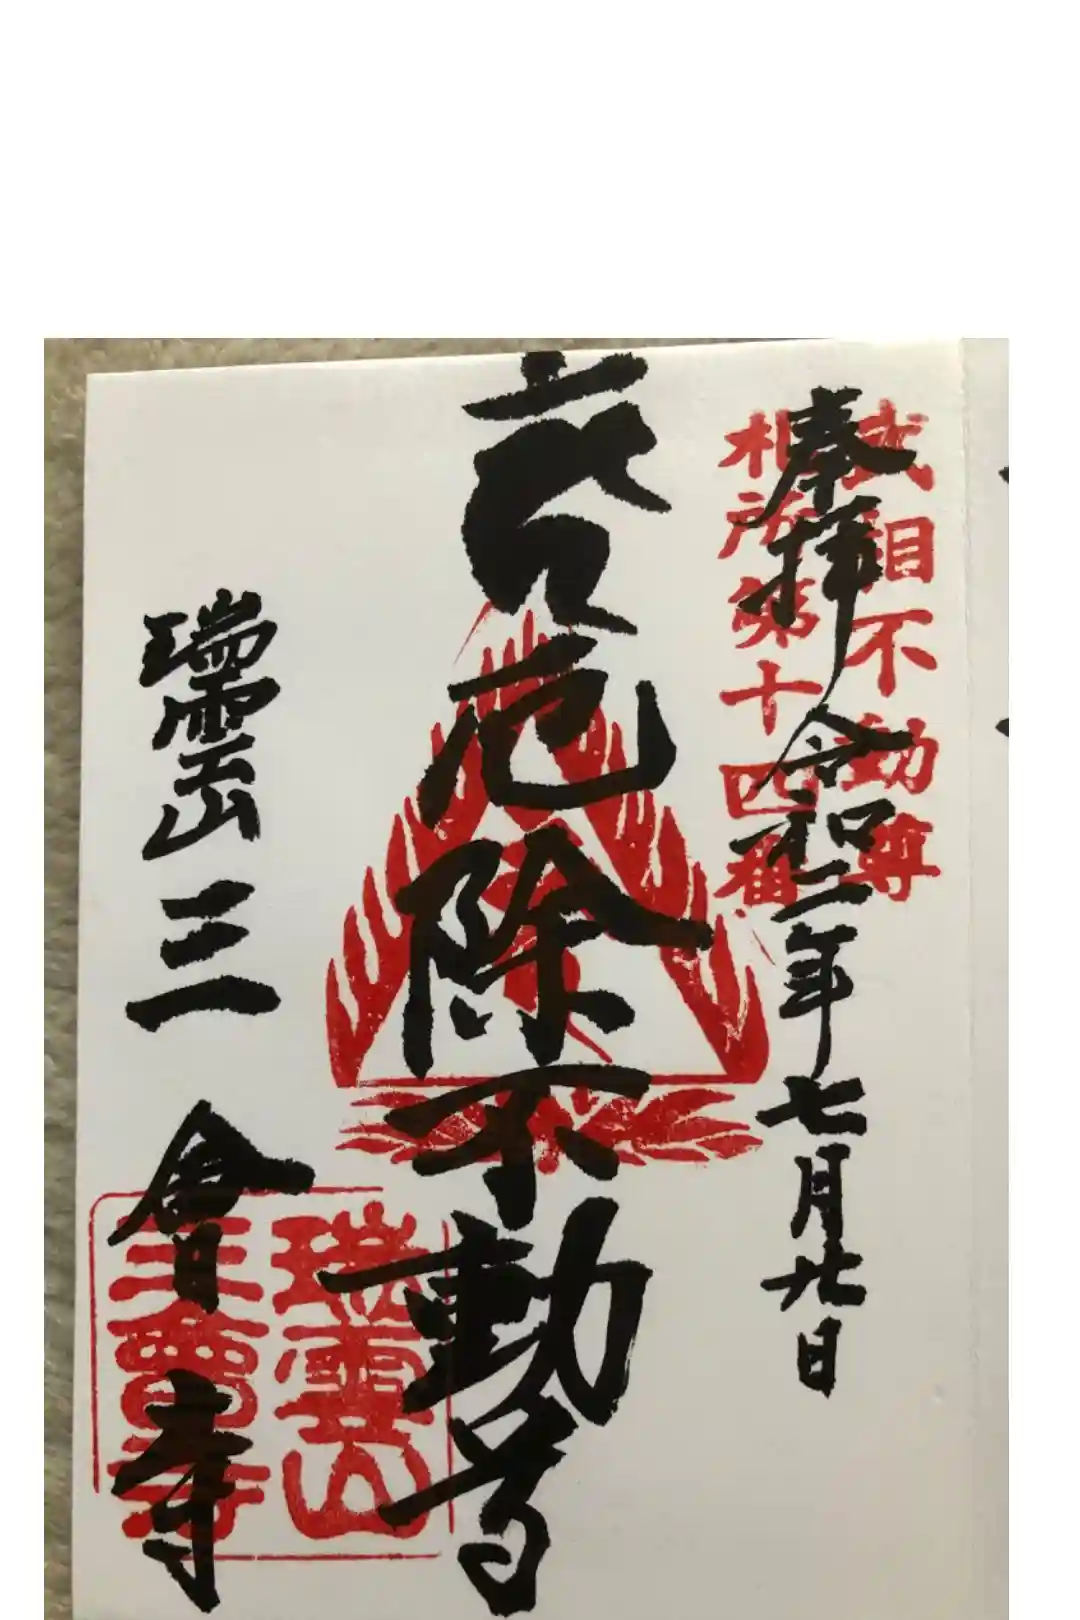 武相不動尊
札所第十四番
奉拝 令和二年七月 日
厄除不動尊
瑞雲山 三會寺
瑞雲山
三會寺